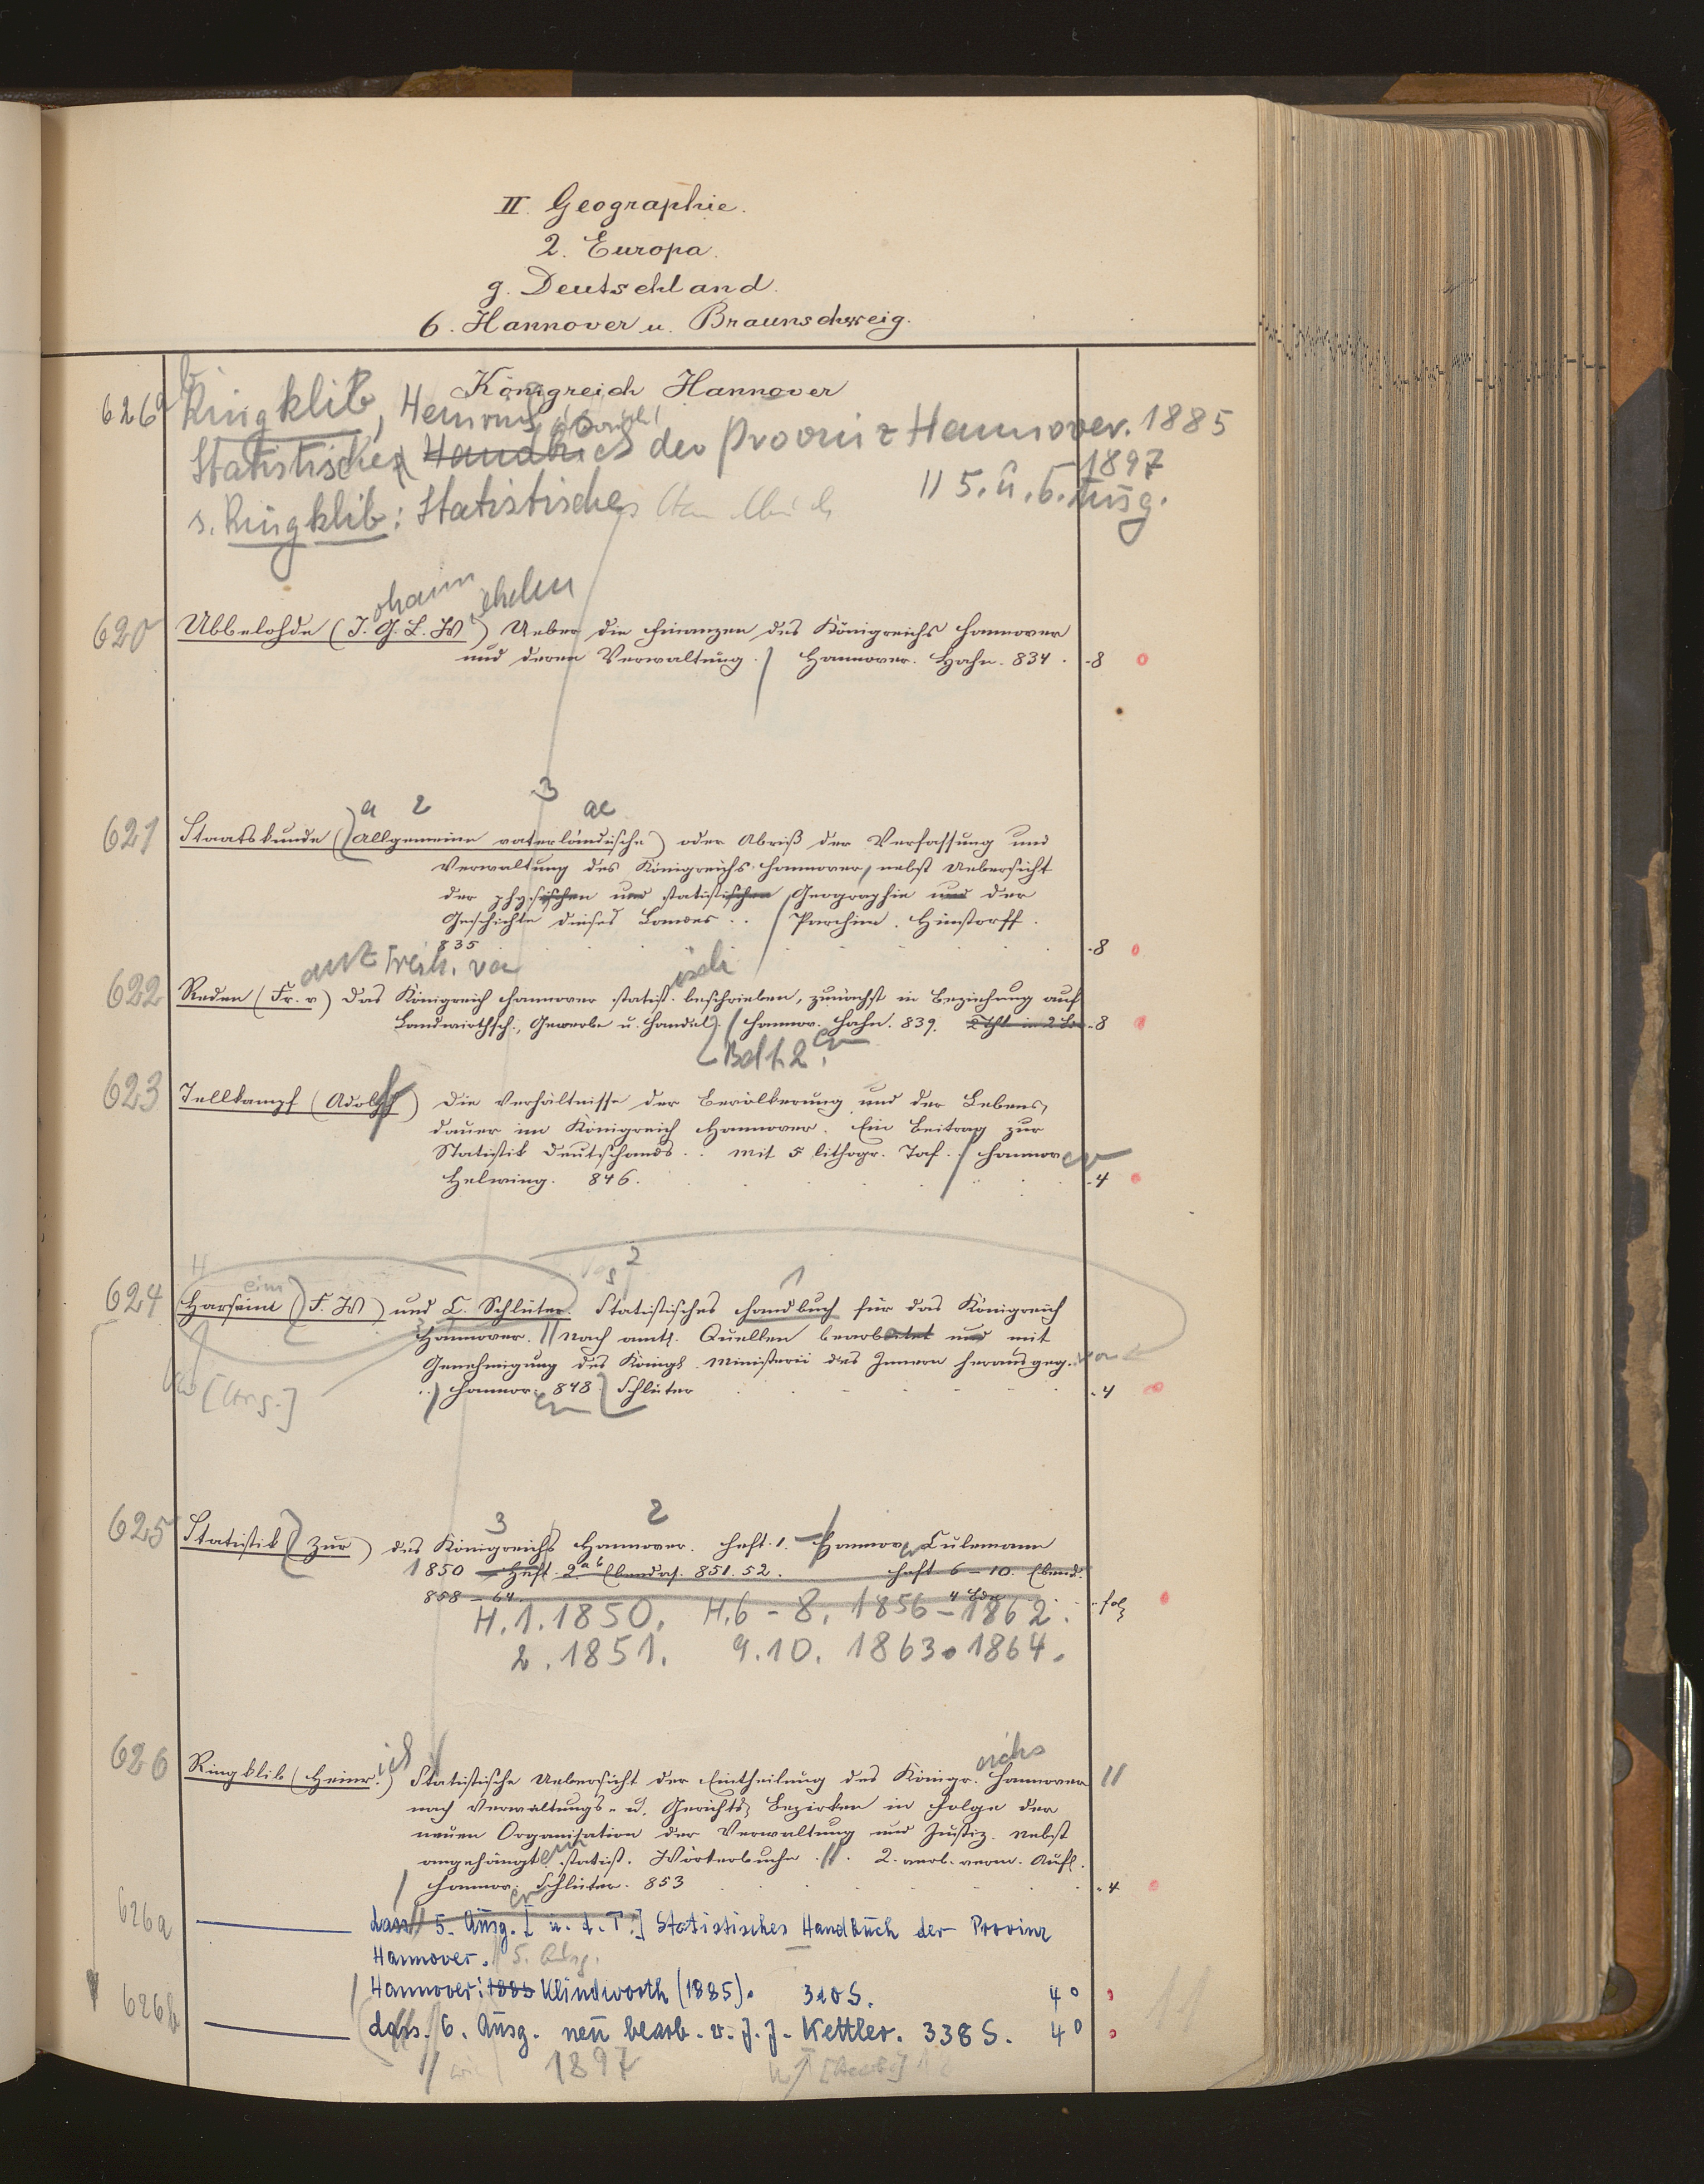 II. Geographie.
2. Europa.
g. Deutschland.
6. Hannover u. Braunschweig.
Königreich Hannover
626a Ringklib,
Statistisches Handbuch der Provinz Hannover. 1885
1897
s. Ringklib: Statistisches Handbuch // 5. u. 6. Ausg.
ohann
620 Ubbelohde (J. G. L. W) Ueber die Finanzen des Königreichs Hannover
und deren Verwaltung. / Hannover. Hahn. 834. 8
a 2 3 ae
621 Staatskunde (Allgemeine vaterländische) oder Abriß der Verfassung und
Verwaltung des Königreichs Hannover, nebst Uebersicht
der physischen und statistischen Geographie und der
Geschichte dieses Landes .. / Parchim. Hinstorff.
835 8
Freih. von isch
622 Reden (Fr. v) Das Königreich Hannover statist. beschrieben, zunächst in Beziehung auf
Landwirthsch., Gewerbe u. Handel. / Hannov. Hahn. 839. 2 Thle in 2 Bdn 8
623 Tellkampf (Adolf) Die Verhältnisse der Bevölkerung und der Lebens-
dauer im Königreich Hannover. Ein Beitrag zur
Statistik Deutschlands .. Mit 5 lithogr. Taf. / Hannover
Helwing. 846. 4
2
1
624 Harseim (F. W) und C. Schlüter. Statistisches Handbuch für das Königreich
Hannover. // Nach amtl. Quellen bearbeitet und mit
Genehmigung des Königl. Ministerii des Innern herausgeg. von
.. / Hannov. 848 Schlüter 4
[Hrsg.]
3 2
625 Statistik (Zur) des Königreichs Hannover. Heft. 1. – Hannov. Culemann
1850 – Heft. 2 a b Ebendas. 851. 52. Heft 6 – 10. Ebend.
858 – 64. 4 Bde fol
H. 1. 1850. H. 6 – 8. 1856 – 1862.
2. 1851. 9. 10. 1863. 1864.
ich eichs
626 Ringklib (Heinr.) Statistische Uebersicht der Eintheilung des Königr. Hannover //
nach Verwaltungs- u. Gerichts-Bezirken in Folge der
neuen Organisation der Verwaltung und Justiz. Nebst
angehängt. statist. Wörterbuche. //. 2. verb. verm. Aufl.
/ Hannov. Schlüter. 853 4
626a dass // 5. Ausg. [u. d. T.:] Statistisches Handbuch der Provinz
Hannover. // 5. Ausg.
/ Hannover: 1885 Klindworth (1885). 320 S. 4°
626b dass. // 6. Ausg. neu bearb. v. J. J. Kettler. 338 S. 4°
// 1897
11